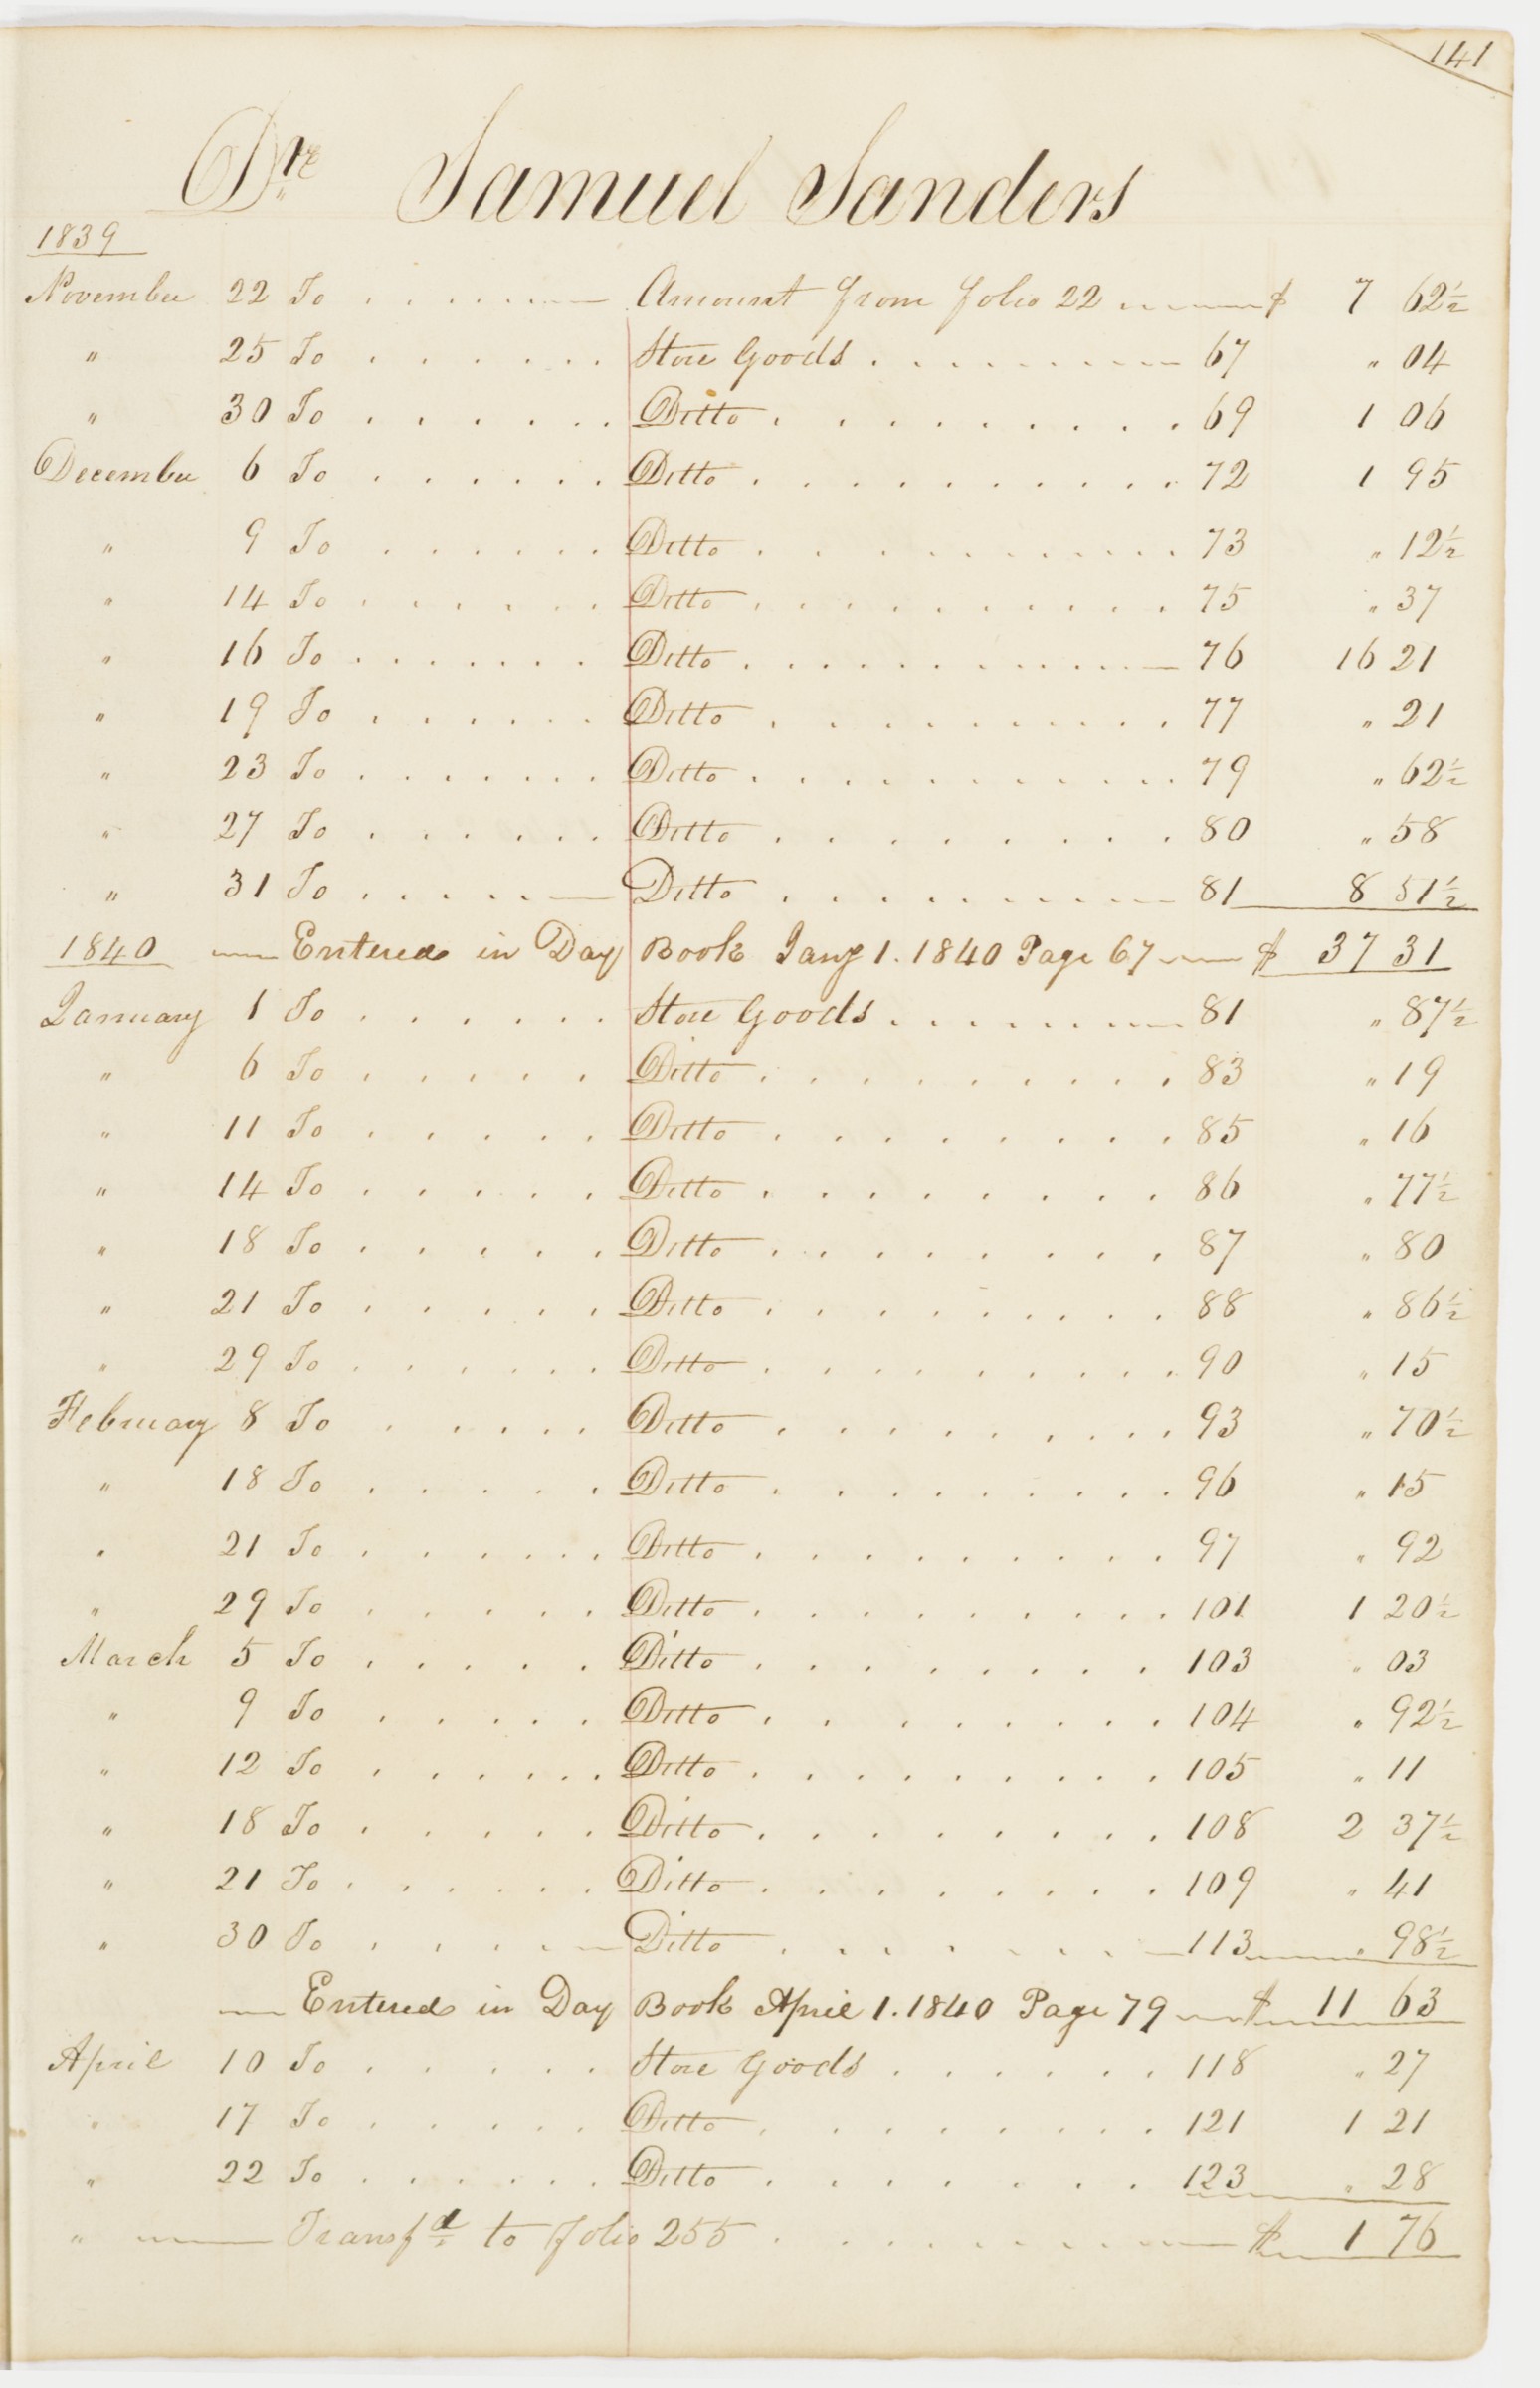 141
Dre Samuel Sanders
1839
November 22 To . . . . . . . Amount from folio 22 $ 7 62½
" 25 To . . . . . . Store Goods . . . . . . . . 67 " 04
" 30 To . . . . . . Ditto . . . . . . . . 69 1 06
December 6 To . . . . . . Ditto . . . . . . . . 72 1 95
" 9 To . . . . . . Ditto . . . . . . . . 73 " 12½
" 14 To . . . . . . Ditto . . . . . . . . 75 " 37
" 16 To . . . . . . Ditto . . . . . . . . 76 16 21
" 19 To . . . . . . Ditto . . . . . . . . 77 " 21
" 23 To . . . . . . Ditto . . . . . . . . 79 " 62½
" 27 To . . . . . . Ditto . . . . . . . . 80 " 58
" 31 To . . . . . . Ditto . . . . . . . . 81 8 51½
1840 Entered in Day Book Jany 1. 1840 Page 67 $ 37 31
January 1 To . . . . . . Store Goods . . . . . . . . 81 " 87½
" 6 To . . . . . . Ditto . . . . . . . . 83 " 19
" 11 To . . . . . . Ditto . . . . . . . . 85 " 16
" 14 To . . . . . . Ditto . . . . . . . . 86 " 77½
" 18 To . . . . . . Ditto . . . . . . . . 87 " 80
" 21 To . . . . . . Ditto . . . . . . . . 88 " 86½
" 29 To . . . . . . Ditto . . . . . . . . 90 " 15
February 8 To . . . . . . Ditto . . . . . . . . 93 " 70½
" 18 To . . . . . . Ditto . . . . . . . . 96 " 15
" 21 To . . . . . . Ditto . . . . . . . . 97 " 92
" 29 To . . . . . . Ditto . . . . . . . . 101 1 20½
March 5 To . . . . . . Ditto . . . . . . . . 103 " 03
" 9 To . . . . . . Ditto . . . . . . . . 104 " 92½
" 12 To . . . . . . Ditto . . . . . . . . 105 " 11
" 18 To . . . . . . Ditto . . . . . . . . 108 2 37½
" 21 To . . . . . . Ditto . . . . . . . . 109 " 41
" 30 To . . . . . . Ditto . . . . . . . . 113 " 98½
Entered in Day Book April 1. 1840 Page 79 $ 11 63
April 10 To . . . . . . Store Goods . . . . . . 118 " 27
" 17 To . . . . . . Ditto . . . . . . . . 121 1 21
" 22 To . . . . . . Ditto . . . . . . . . 123 " 28
" Transfd to folio 255 . . . . . . . . $ 1 76